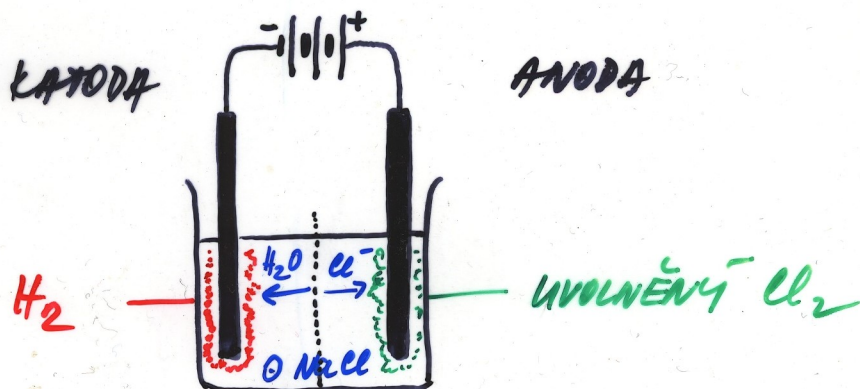 - +
KATODA ANODA
H₂O Cl⁻
H₂ UVOLNĚNÝ Cl₂
⊖ NaCl